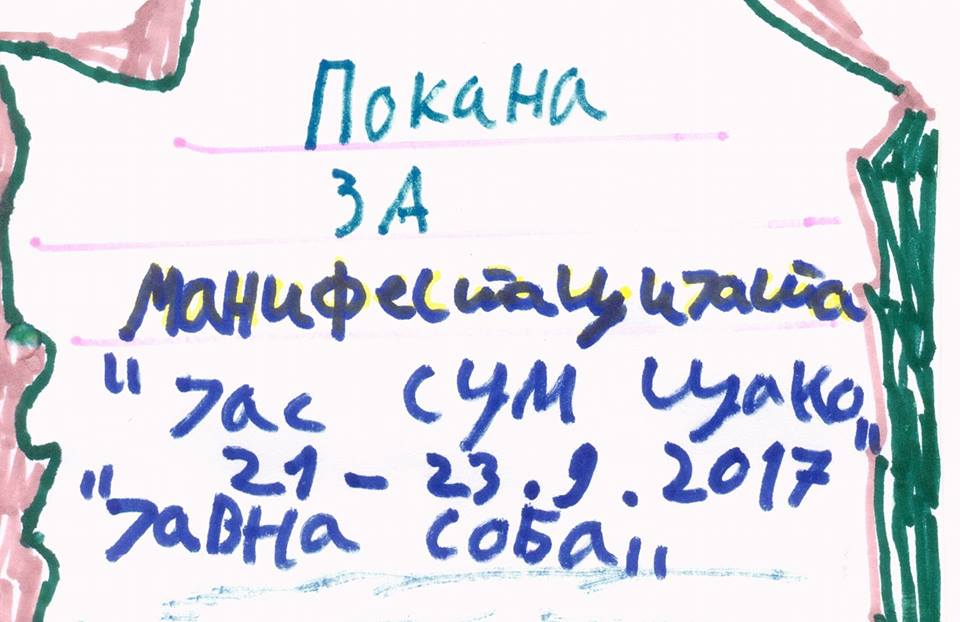 Покана
ЗА
манифестацијата
"Јас СУМ Цако"
21-23.9.2017
"Јавна соба"